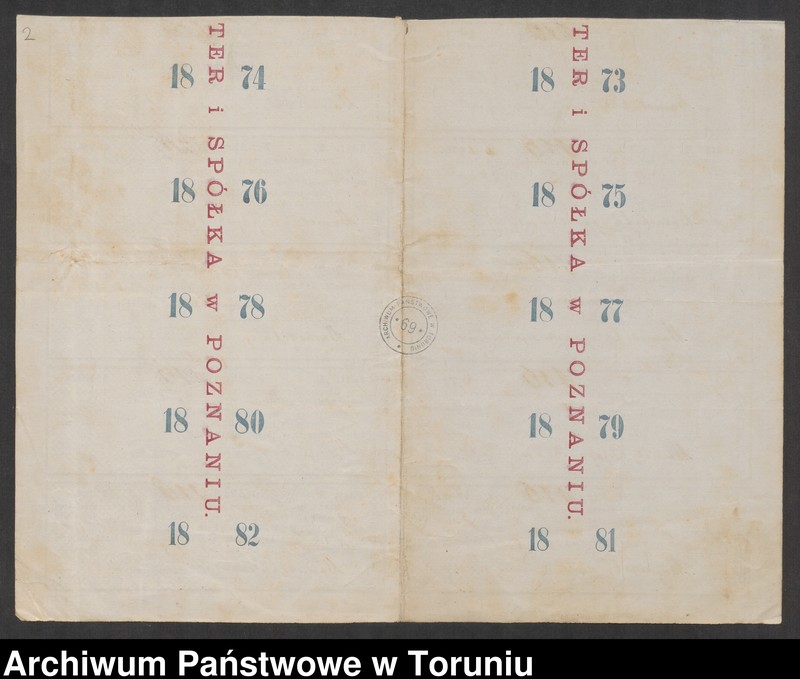 2
TER i SPÓŁKA w POZNANIU.
18 74
18 76
18 78
18 80
18 82
TER i SPÓŁKA w POZNANIU.
18 73
18 75
18 77
18 79
18 81
ARCHIWUM PAŃSTWOWE W TORUNIU
69
Archiwum Państwowe w Toruniu